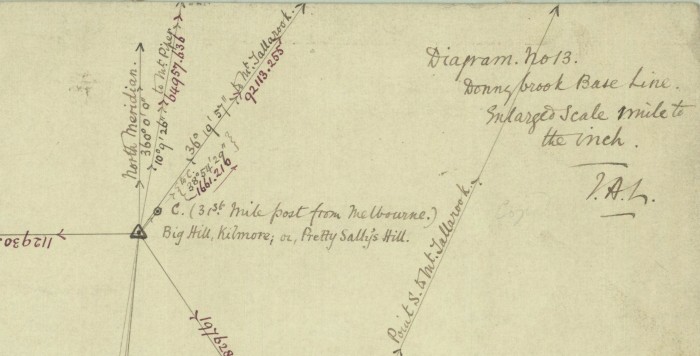 Diagram. No 13.
Donnybrook Base Line.
Enlarged Scale 1 mile to
the inch.
T.A.L.
North Meridian.
360° 0' 0"
to Mt. Piper
10° 9' 26"
64957.636
to Mt. Tallarook.
36° 19' 57"
92113.255
to C.
38° 54' 29"
1661.216
C. (31st Mile post from Melbourne.)
Big Hill, Kilmore; or, Pretty Sally's Hill.
112930.
Point S. to Mt. Tallarook.